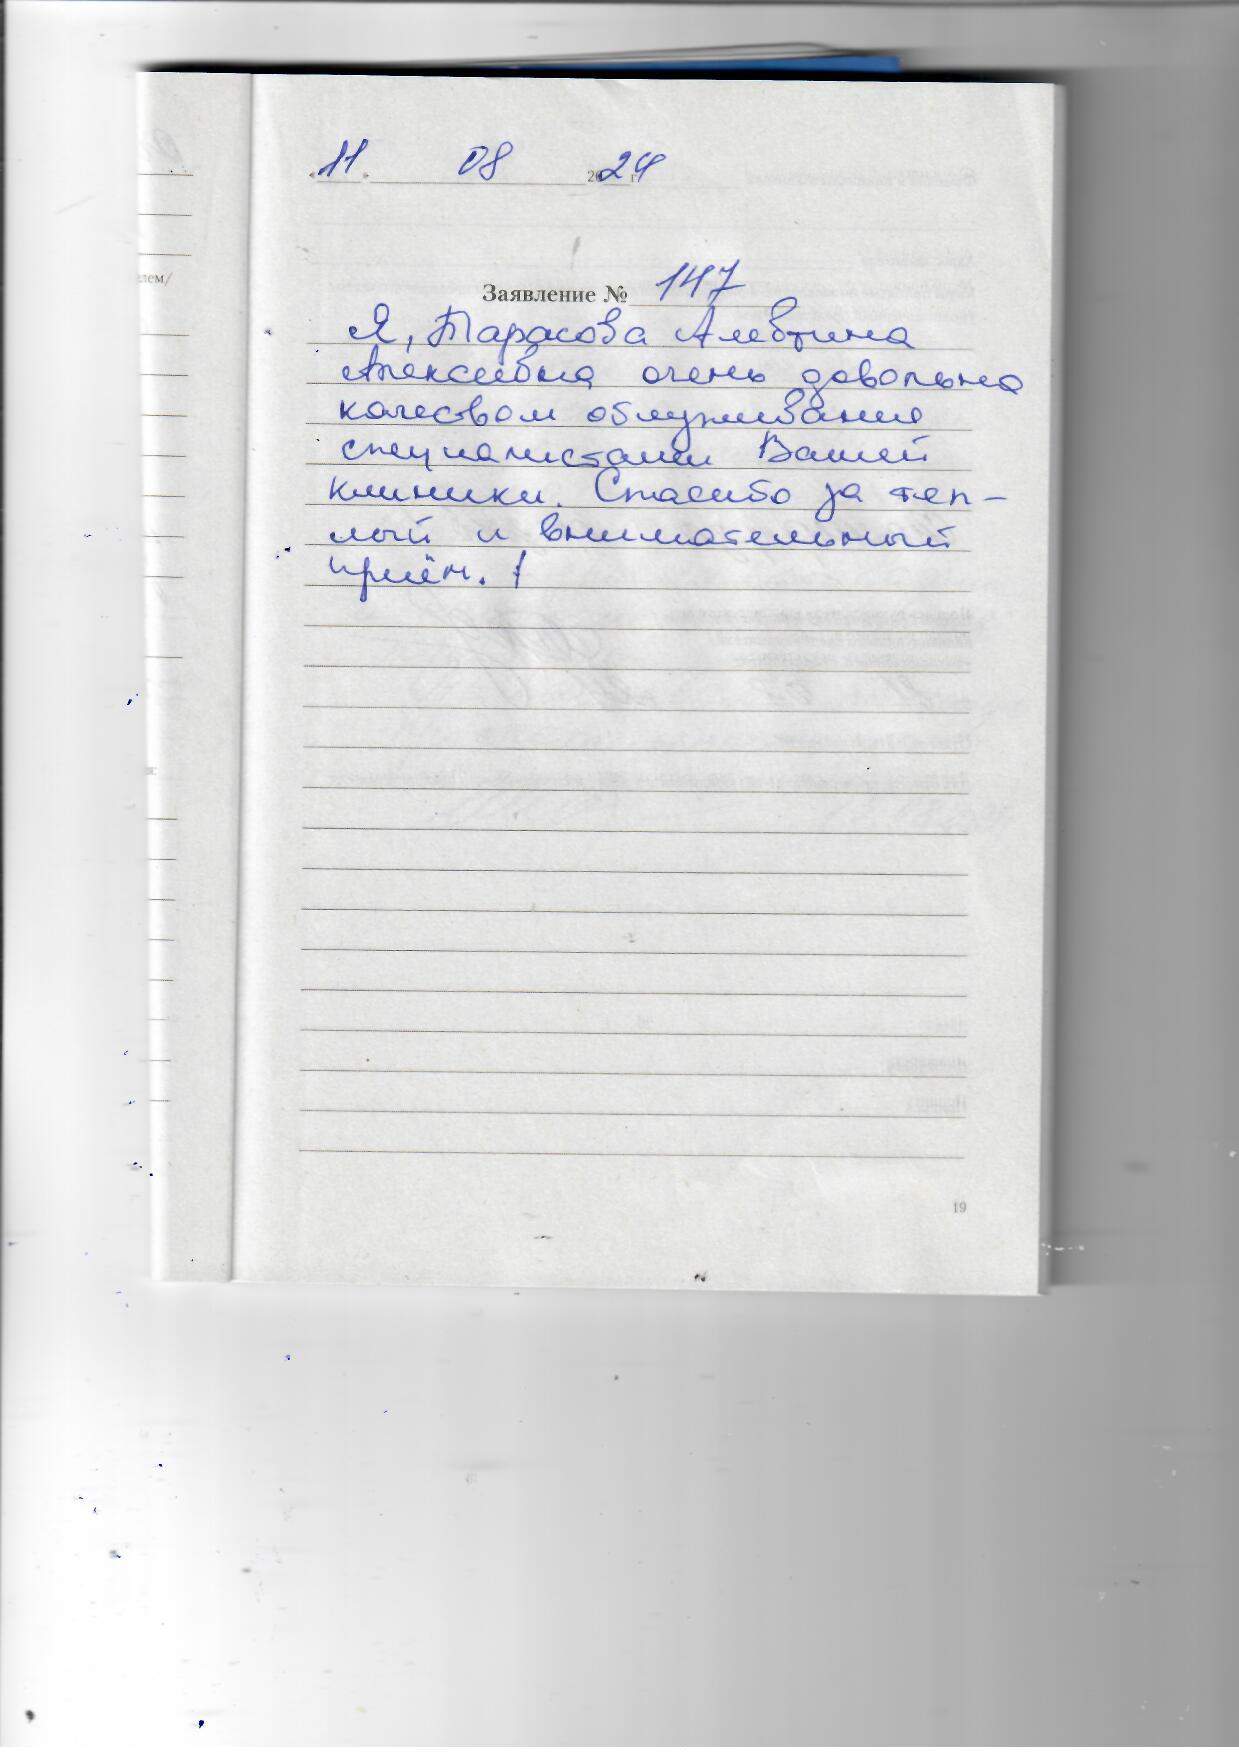 «11» 08 2024 г.
лем/
Заявление № 147
Я, Тарасова Алевтина
Алексеевна очень довольна
качесвом облуживания
специалистами Вашей
клиники. Спасибо за теп-
лый и внимательный
приём. !
19